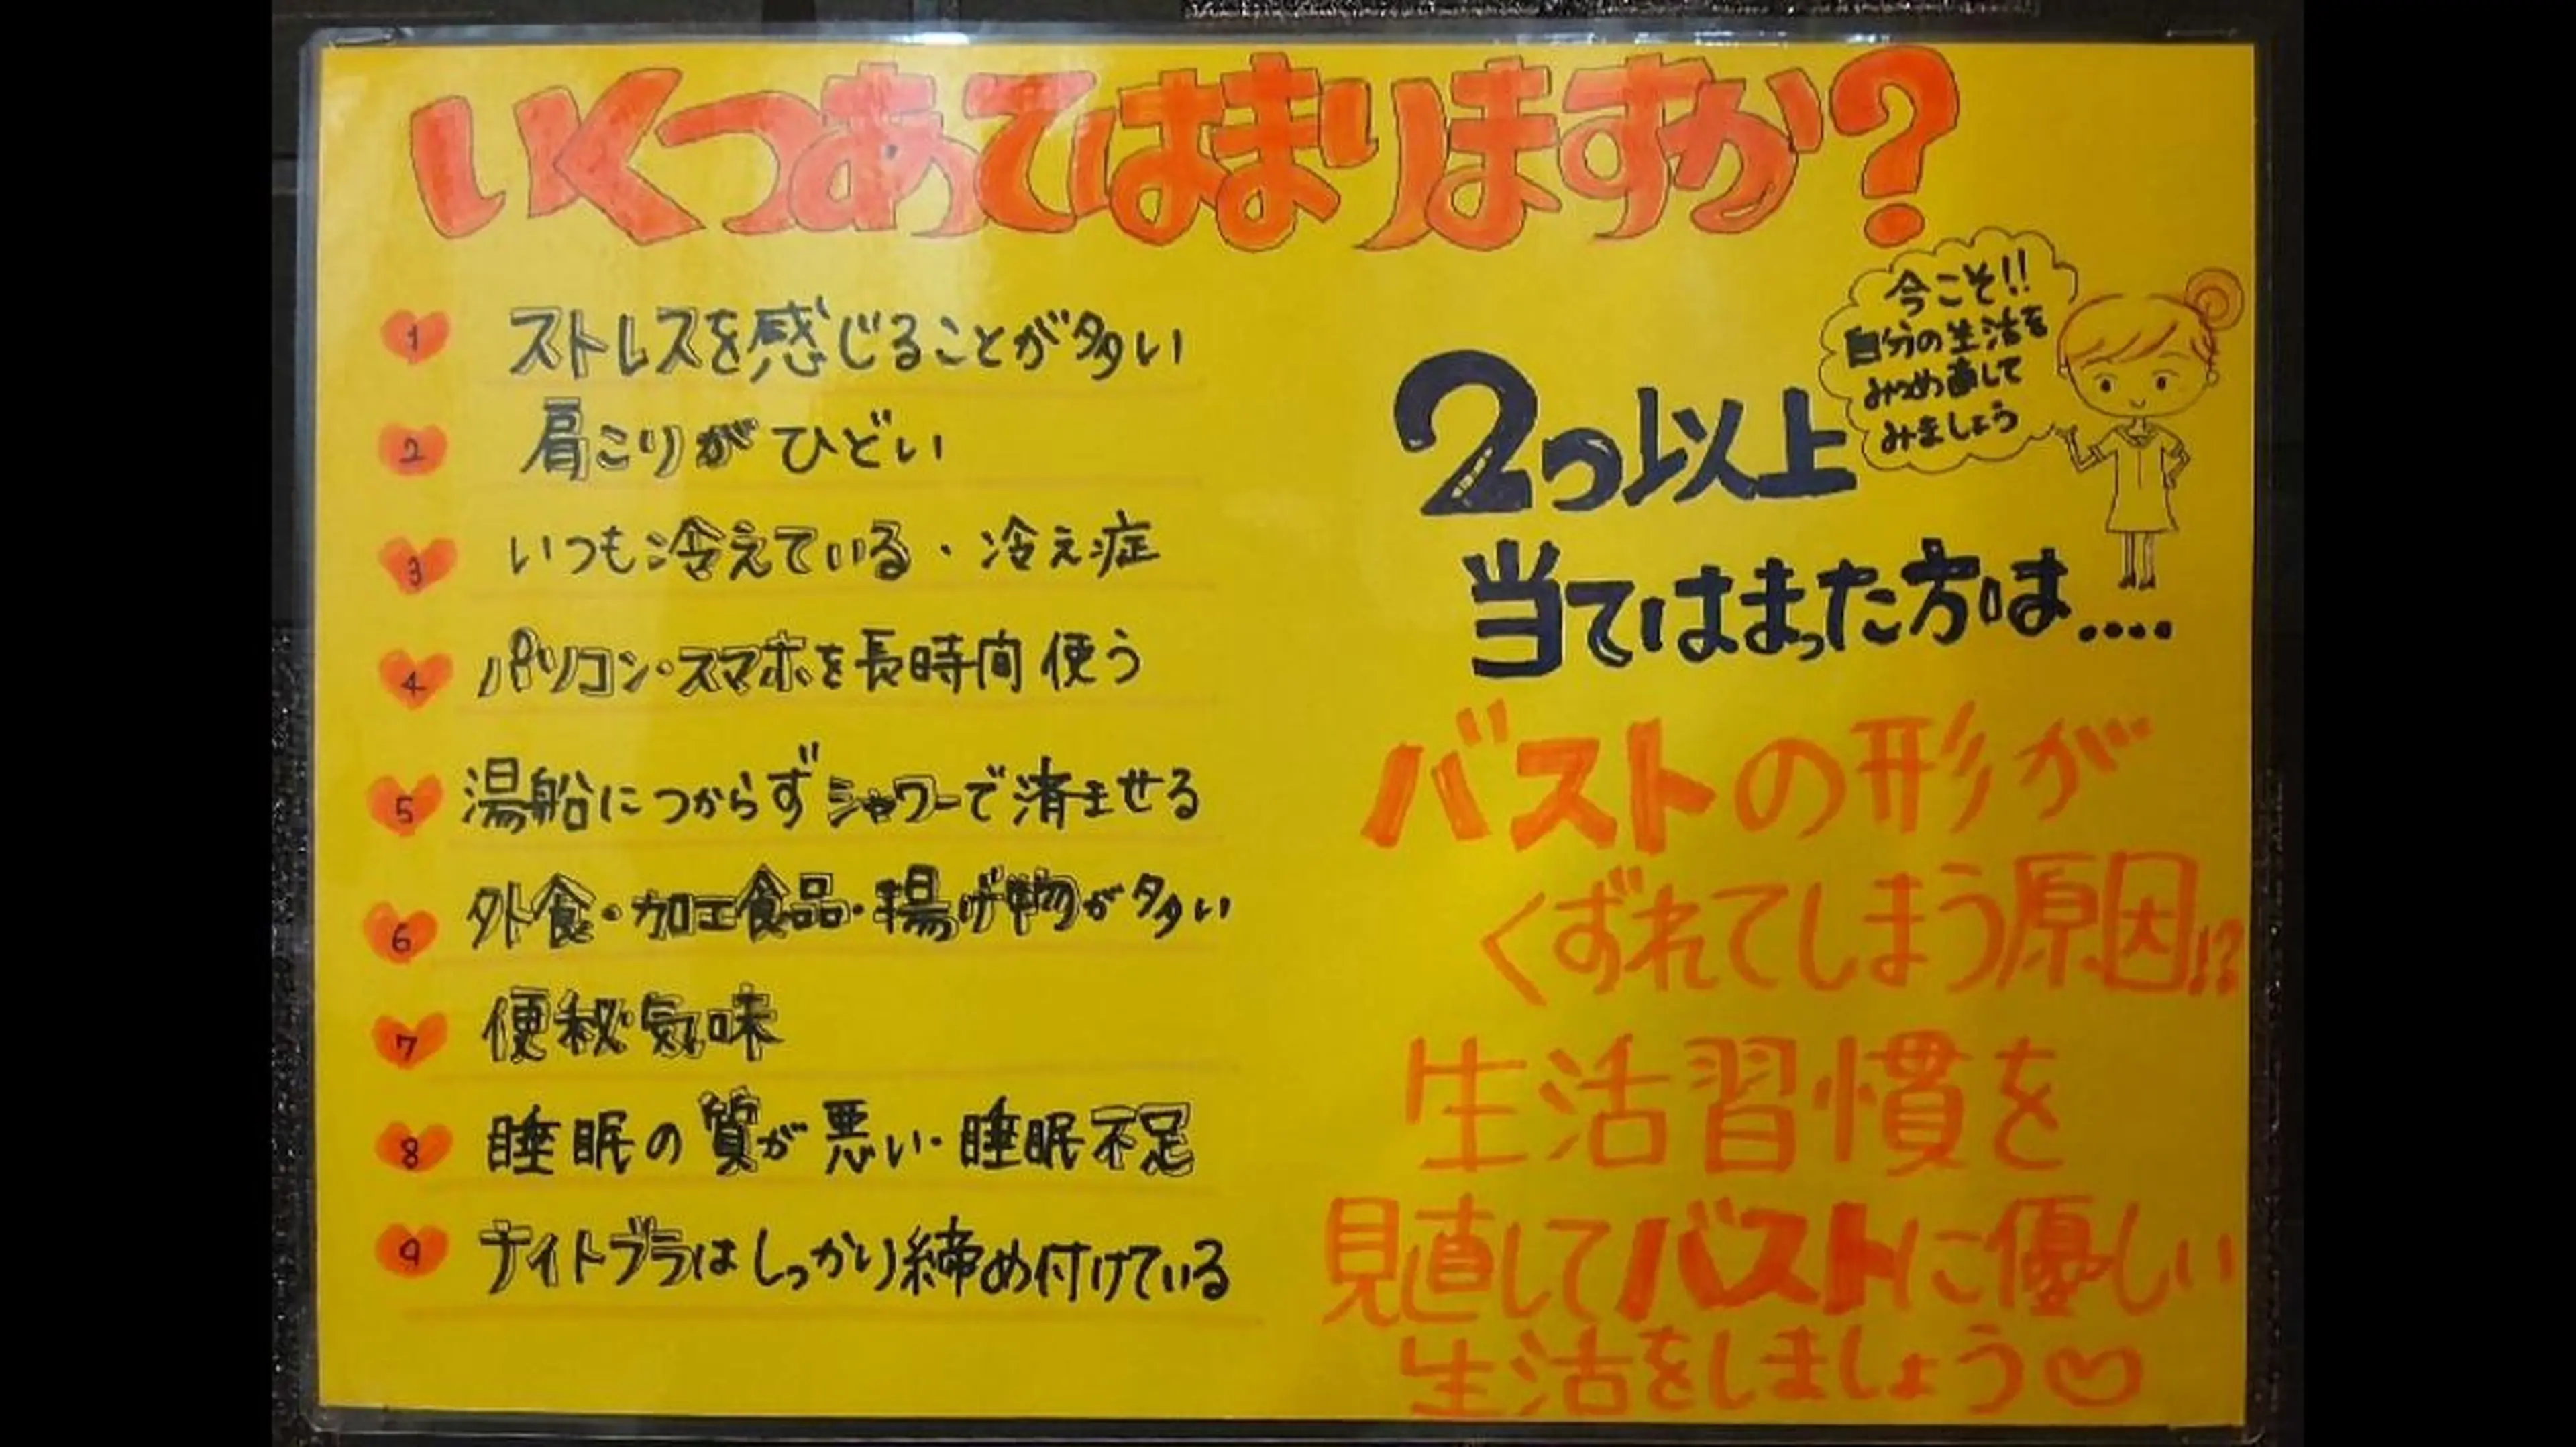 いくつあてはまりますか?
1 ストレスを感じることが多い
2 肩こりがひどい
3 いつも冷えている・冷え症
4 パソコン・スマホを長時間使う
5 湯船につからずシャワーで済ませる
6 外食・加工食品・揚げ物が多い
7 便秘気味
8 睡眠の質が悪い・睡眠不足
9 ナイトブラはしっかり締め付けている
今こそ!!
自分の生活を
みつめ直して
みましょう
2つ以上
当てはまった方は....
バストの形が
くずれてしまう原因!?
生活習慣を
見直してバストに優しい
生活をしましょう♡